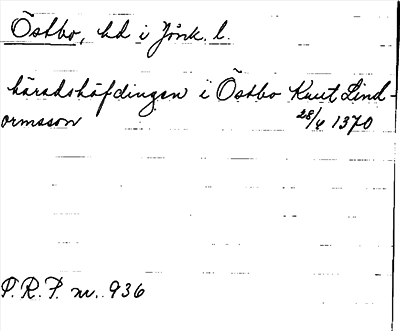 Östbo, hd i Jönk. l.
häradshöfdingen i Östbo Knut Lind-
ormsson 28/6 1370
P.R.P. nr. 936